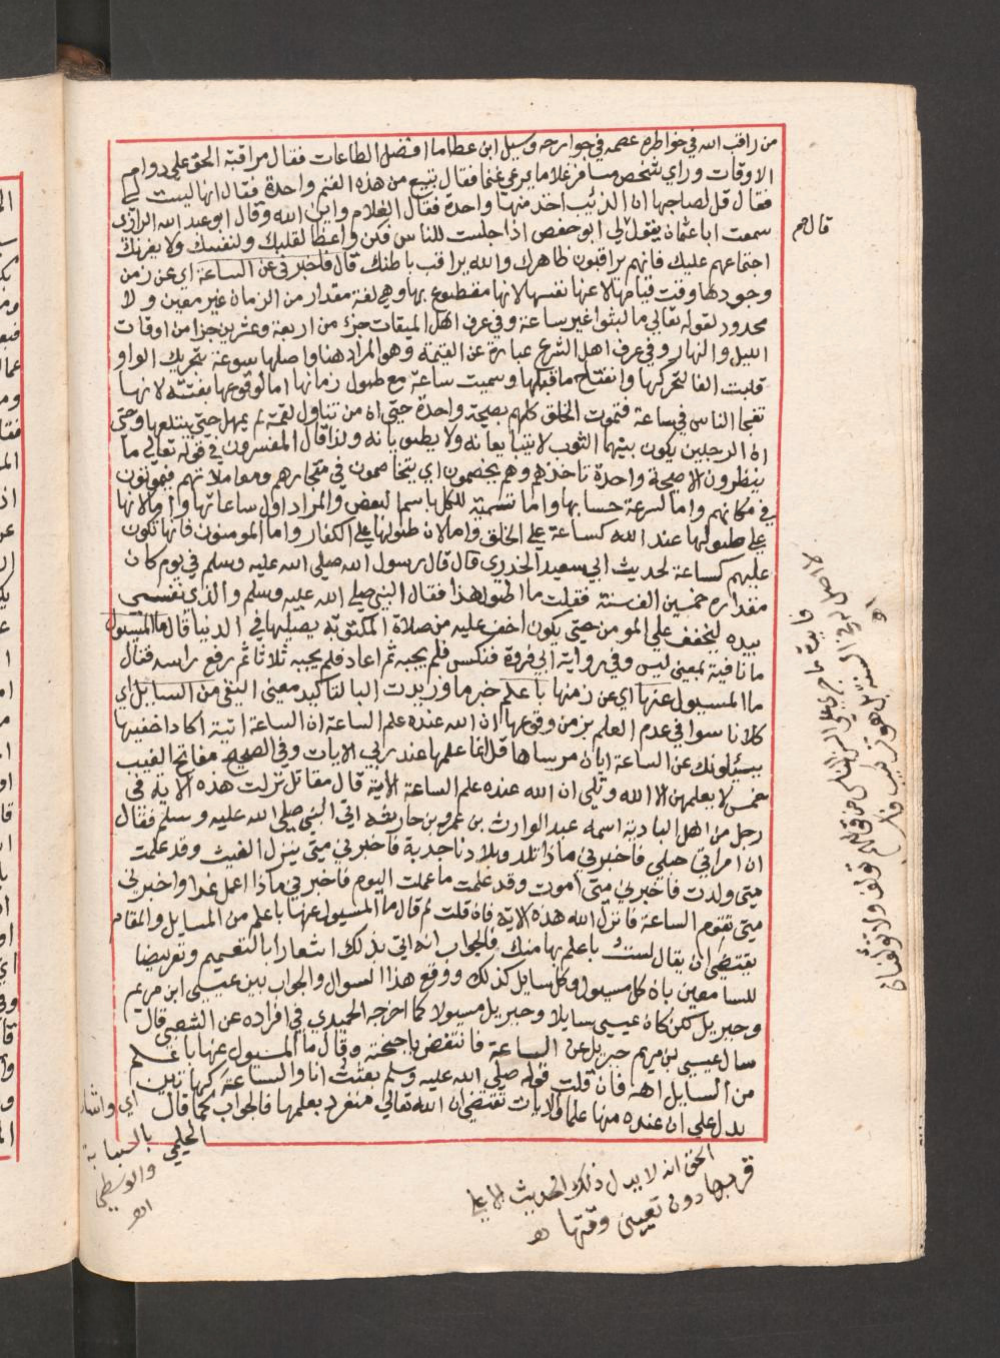 من راقب الله في خواطره عصمه في جوارحه وسيل ابن عطا ما افضل الطاعات فقال مراقبة الحق على دوام
الاوقات وراي شخص مسافر غلاما يرعى غنما فقال تبيع من هذه الغنم واحدة فقال انها ليست لي
فقال قل لصاحبها ان الذئب اخذ منها واحدة فقال الغلام واين الله وقال ابو عبد الله الرازي
سمعت ابا عثمان يقول لي ابو حفص اذا جلست للناس فكن واعظا لقلبك ولنفسك ولا يغرنك
اجتماعهم عليك فانهم يراقبون ظاهرك والله يراقب باطنك قال فاخبرني عن الساعة اي عن زمن
وجودها وقت قيامها لا عنها نفسها لانها مقطوع بها وهي لغة مقدار من الزمان غير معين ولا
محدود لقوله تعالى ما لبثوا غير ساعة وفي عرف اهل الميقات جزء من اربعة وعشرين جزا من اوقات
الليل والنهار وفي عرف اهل الشرع عبارة عن القيمة وهو المراد هنا واصلها سوعة بتحريك الواو
قلبت الفا لتحركها وانفتاح ما قبلها وسميت ساعة مع طول زمانها اما لوقوعها بغتة لانها
تفجا الناس في ساعة فتموت الخلق كلهم بصيحة واحدة حتى ان من تناول لقمة لم يمهل حتى يبتلعها وحتى
ان الرجلين يكون بينهما الثوب لا يتبايعانه ولا يطويانه ولذا قال المفسرون في قوله تعالى ما
ينظرون الا صيحة واحدة تاخذهم وهم يخصمون اي يتخاصمون في متجارهم ومعاملاتهم فيموتون
في مكانهم واما لسرعة حسابها واما تسمية للكل باسم البعض والمراد اول ساعاتها واما لانها
على طولها عند الله كساعة على الخلق واما لان طولها على الكفار واما المومنون فانها تكون
عليهم كساعة لحديث ابي سعيد الخدري قال قال رسول الله صلى الله عليه وسلم في يوم كان
مقداره خمسين الف سنة فقلت ما اطول هذا فقال النبي صلى الله عليه وسلم والذي نفسي
بيده ليخفف على المومن حتى يكون اخف عليه من صلاة المكتوبة يصليها في الدنيا قال ما المسيول
ما نافية بمعنى ليس وفي رواية ابي فروة فنكس فلم يجبه ثم اعاد فلم يجبه ثلاثا ثم رفع راسه فقال
ما المسيول عنها اي عن زمنها باعلم خبر ما وزيدت البا لتاكيد معنى النفي من السايل اي
كلانا سوا في عدم العلم بزمن وقوعها ان الله عنده علم الساعة ان الساعة اتية اكاد اخفيها
يسئلونك عن الساعة ايان مرساها قل انما علمها عند ربي الايات وفي الصحيح مفاتح الغيب
خمس لا يعلمهن الا الله وتلى ان الله عنده علم الساعة الاية قال مقاتل نزلت هذه الاية في
رجل من اهل البادية اسمه عبد الوارث بن عمرو بن حارثة اتى النبي صلى الله عليه وسلم فقال
ان امراتي حبلى فاخبرني ماذا تلد وبلادنا جدبة فاخبرني متى ينزل الغيث وقد علمت
متى ولدت فاخبرني متى اموت وقد علمت ما عملت اليوم فاخبرني ماذا اعمل غدا واخبرني
متى تقوم الساعة فانزل الله هذه الاية فان قلت لم قال ما المسيول عنها باعلم من السايل والمقام
يقتضي ان يقال لست باعلم بها منك فالجواب انه اتى بذلك اشعارا بالتعميم وتعريضا
للسامعين بان كل مسيول وكل سايل كذلك ووقع هذا السوال والجواب بين عيسى ابن مريم
وجبريل لكن كان عيسى سايلا وجبريل مسيولا كما اخرجه الحميدي في افراده عن الشعبي قال
سال عيسى بن مريم جبريل عن الساعة فانتفض باجنحته وقال ما المسيول عنها باعلم
من السايل اهـ فان قلت قوله صلى الله عليه وسلم بعثت انا والساعة كهاتين
يدل على ان عنده منها علما والايات تقتضي ان الله تعالى منفرد بعلمها فالجواب كما قال
الحليمي
اي واشار
بالسبابة
والوسطى
اهـ
الحق انه لا يدل ذلك الحديث الا على
قربها دون تعيين وقتها اهـ
قال حم